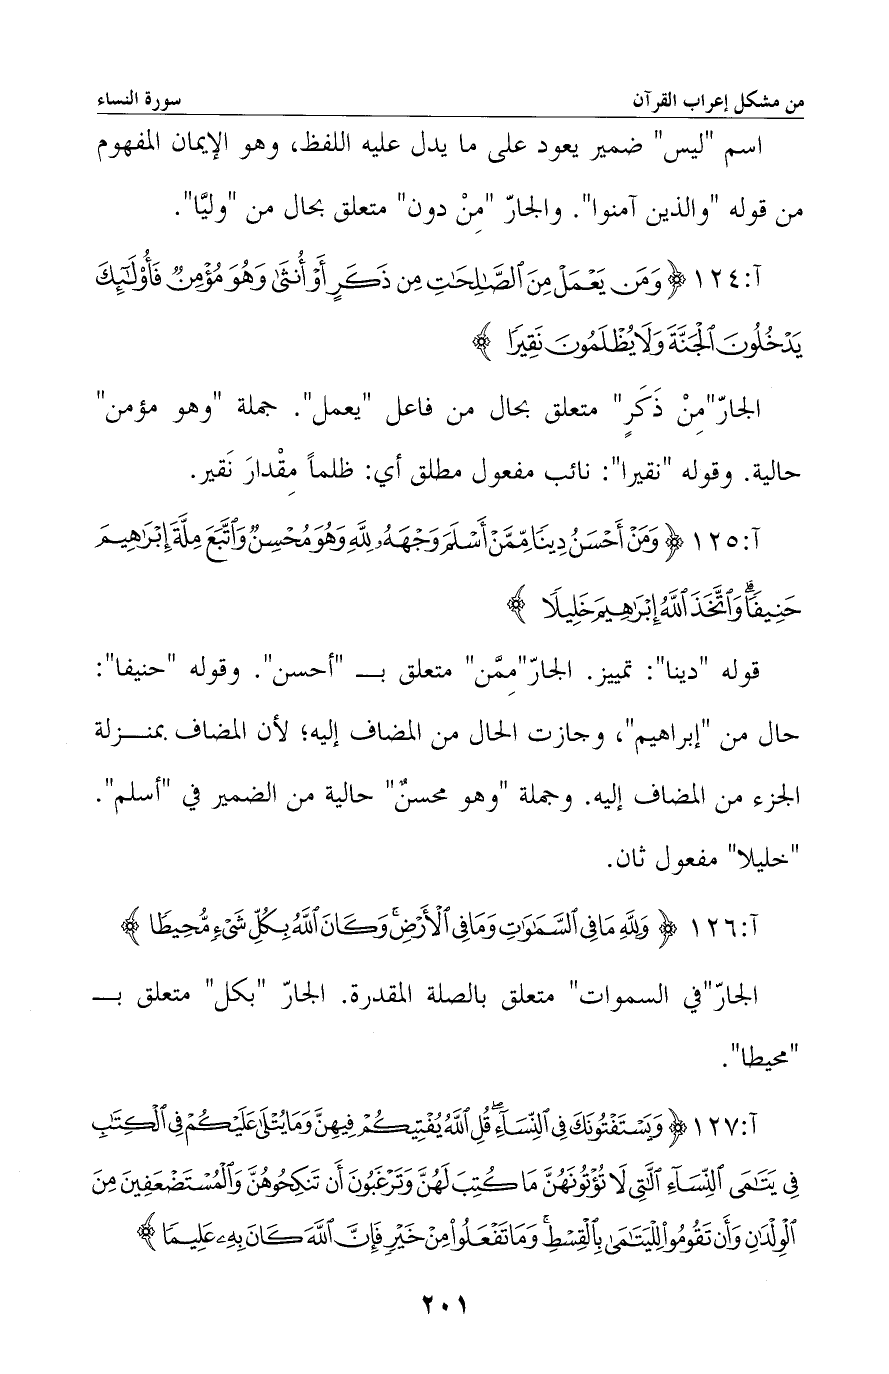 من مشكل إعراب القرآن سورة النساء
اسم "ليس" ضمير يعود على ما يدل عليه اللفظ، وهو الإيمان المفهوم
من قوله "والذين آمنوا". والجارّ "مِنْ دون" متعلق بحال من "وليًّا".
آ:١٢٤ ﴿ وَمَن يَعْمَلْ مِنَ ٱلصَّٰلِحَٰتِ مِن ذَكَرٍ أَوْ أُنثَىٰ وَهُوَ مُؤْمِنٌ فَأُوْلَٰٓئِكَ
يَدْخُلُونَ ٱلْجَنَّةَ وَلَا يُظْلَمُونَ نَقِيرًا ﴾
الجارّ"مِنْ ذَكَرٍ" متعلق بحال من فاعل "يعمل". جملة "وهو مؤمن"
حالية. وقوله "نقيرا": نائب مفعول مطلق أي: ظلماً مِقْدارَ نَقير.
آ:١٢٥ ﴿ وَمَنْ أَحْسَنُ دِينًا مِّمَّنْ أَسْلَمَ وَجْهَهُۥ لِلَّهِ وَهُوَ مُحْسِنٌ وَٱتَّبَعَ مِلَّةَ إِبْرَٰهِيمَ
حَنِيفًاۗ وَٱتَّخَذَ ٱللَّهُ إِبْرَٰهِيمَ خَلِيلًا ﴾
قوله "دينا": تمييز. الجارّ"مِمَّن" متعلق بـ "أحسن". وقوله "حنيفا":
حال من "إبراهيم"، وجازت الحال من المضاف إليه؛ لأن المضاف بمنـزلة
الجزء من المضاف إليه. وجملة "وهو محسنٌ" حالية من الضمير في "أسلم".
"خليلا" مفعول ثان.
آ:١٢٦ ﴿ وَلِلَّهِ مَا فِي ٱلسَّمَٰوَٰتِ وَمَا فِي ٱلْأَرْضِۚ وَكَانَ ٱللَّهُ بِكُلِّ شَيْءٍ مُّحِيطًا ﴾
الجارّ"في السموات" متعلق بالصلة المقدرة. الجارّ "بكل" متعلق بـ
"محيطا".
آ:١٢٧ ﴿ وَيَسْتَفْتُونَكَ فِي ٱلنِّسَآءِۖ قُلِ ٱللَّهُ يُفْتِيكُمْ فِيهِنَّ وَمَا يُتْلَىٰ عَلَيْكُمْ فِي ٱلْكِتَٰبِ
فِي يَتَٰمَى ٱلنِّسَآءِ ٱلَّٰتِي لَا تُؤْتُونَهُنَّ مَا كُتِبَ لَهُنَّ وَتَرْغَبُونَ أَن تَنكِحُوهُنَّ وَٱلْمُسْتَضْعَفِينَ مِنَ
ٱلْوِلْدَٰنِ وَأَن تَقُومُواْ لِلْيَتَٰمَىٰ بِٱلْقِسْطِۚ وَمَا تَفْعَلُواْ مِنْ خَيْرٍ فَإِنَّ ٱللَّهَ كَانَ بِهِۦ عَلِيمًا ﴾
٢٠١